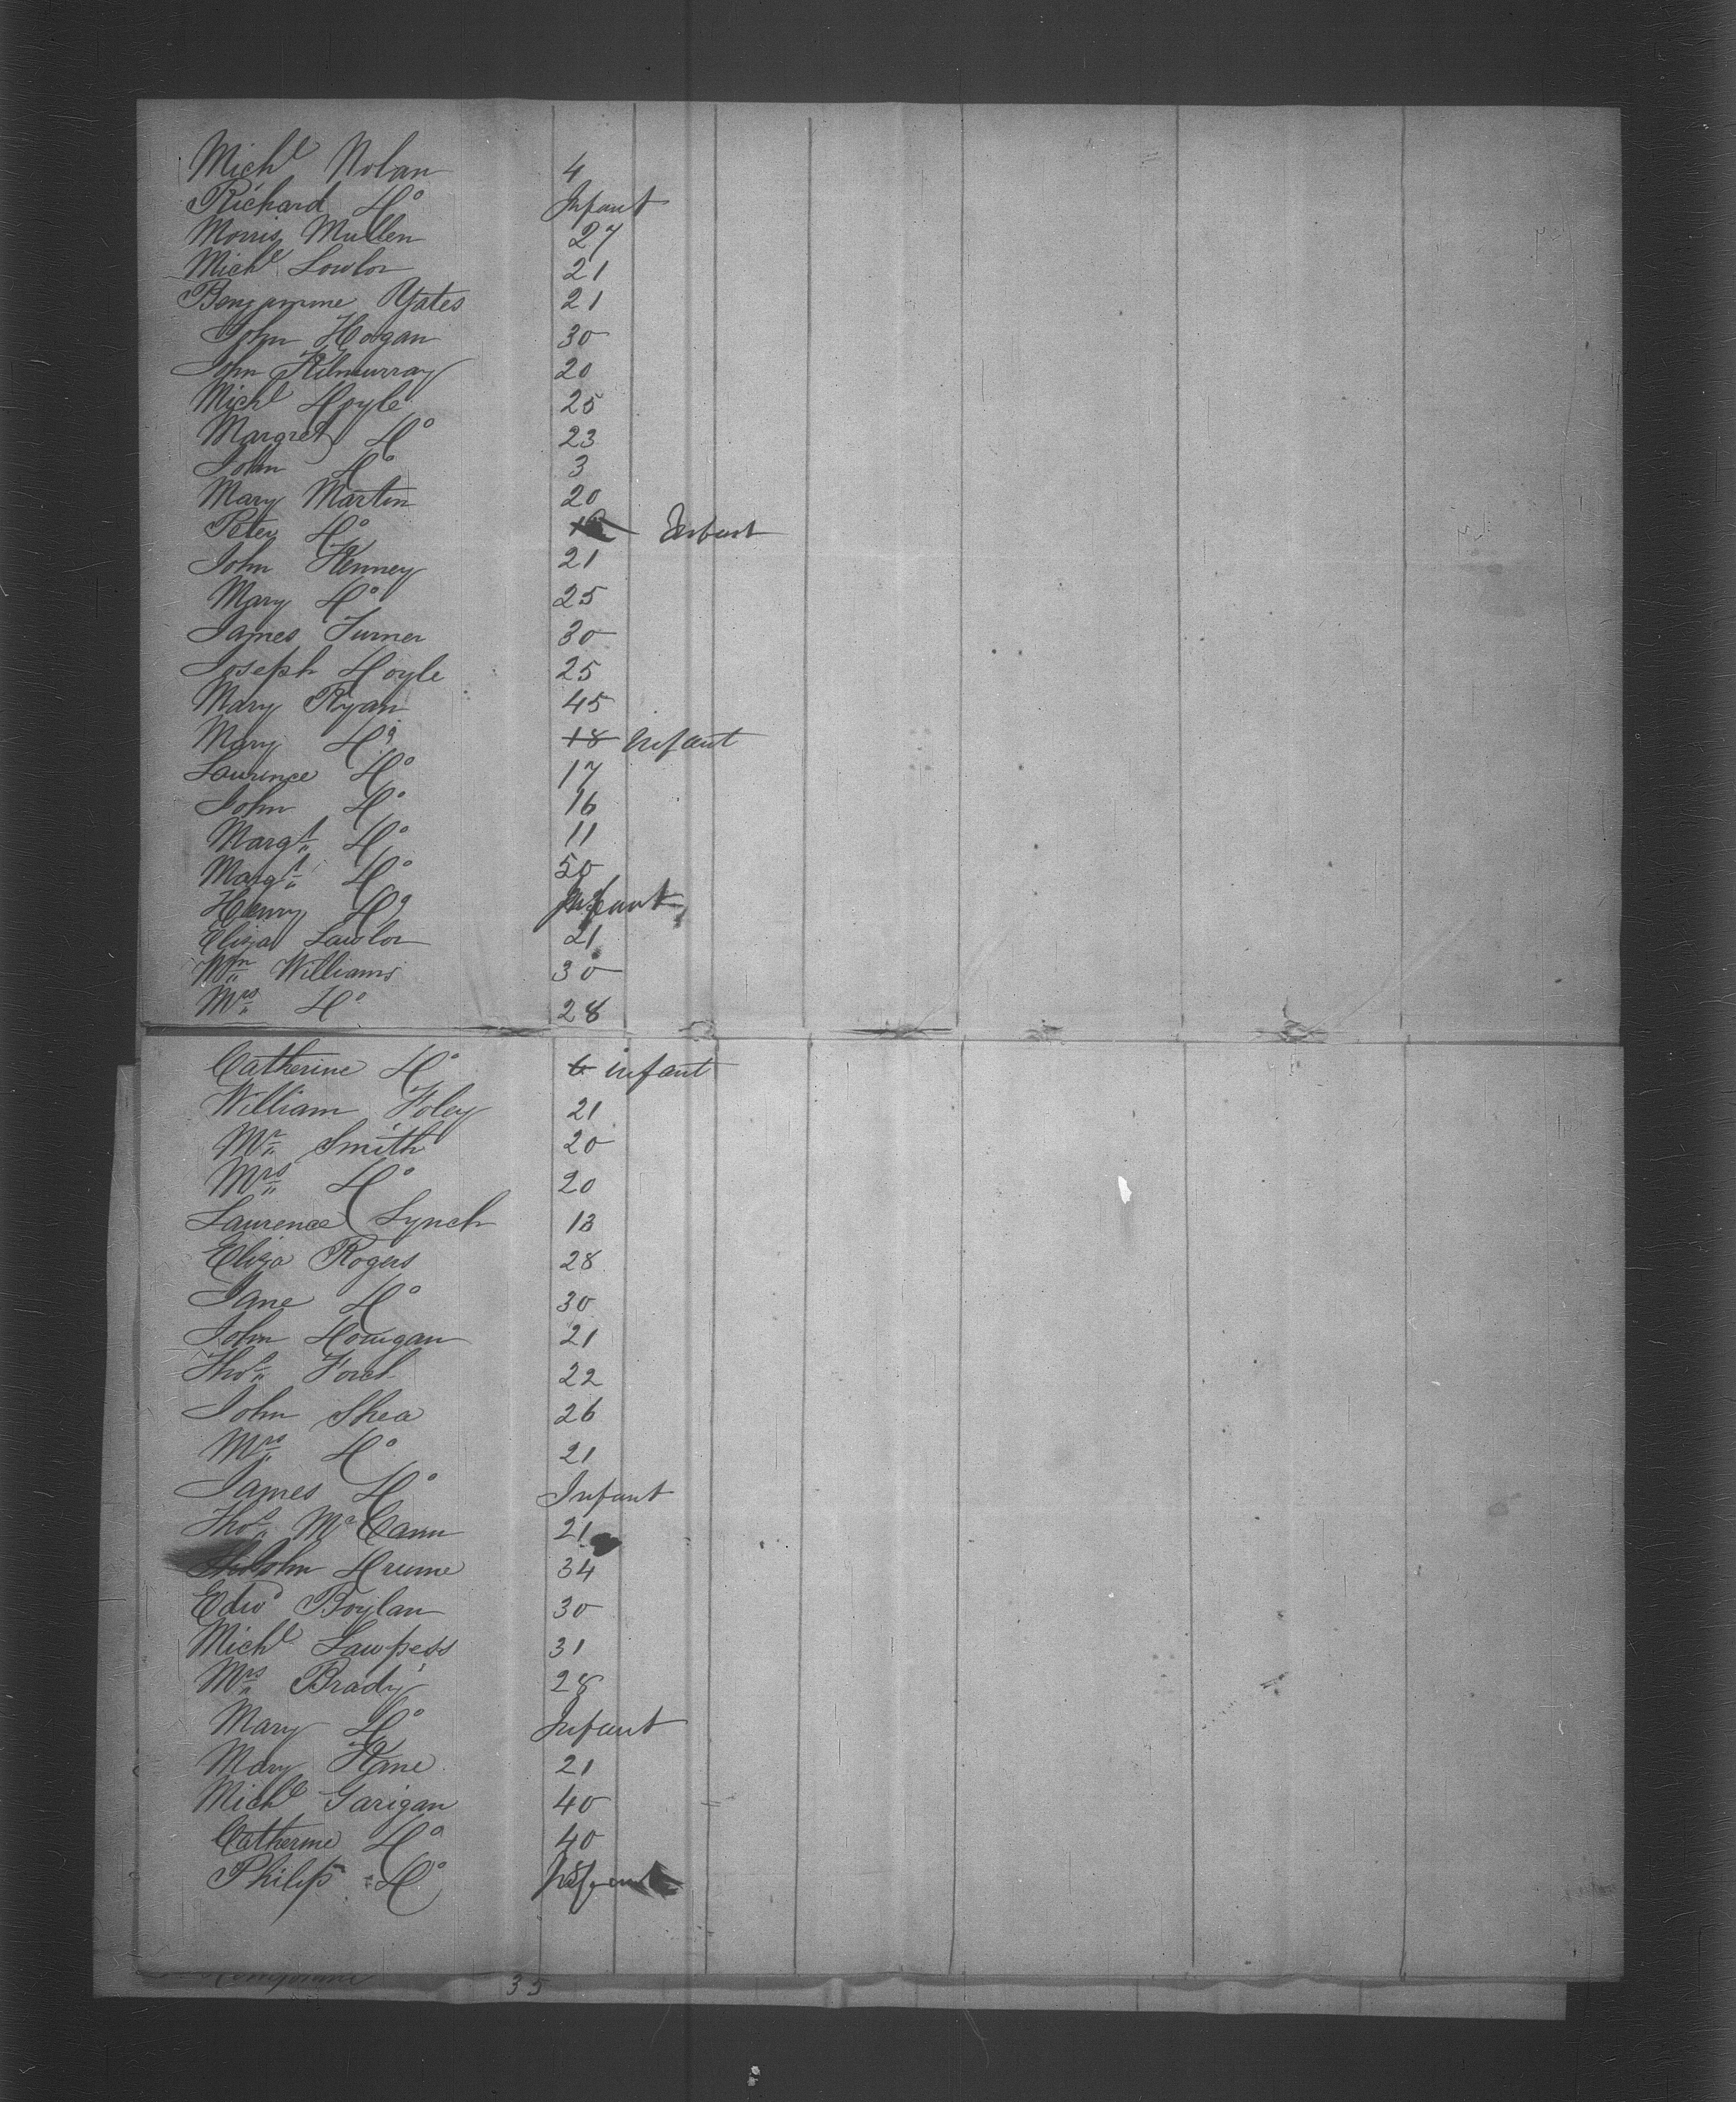 Michl Nolan 4
Richard Do Infant
Morris Mullen 27
Michl Lowlor 21
Benjamine Yates 21
John Hogan 30
John Kilmurray 20
Michl Doyle 25
Margret Do 23
John Do 3
Mary Martin 20
Peter Do Infant
John Kenney 21
Mary Do 25
James Turner 30
Joseph Doyle 25
Mary Ryan 45
Mary Do 18 Infant
Laurence Do 17
John Do 16
Margt Do 11
Margt Do 50
Henry Do Infant
Eliza Lawlor 21
Wm Williams 30
Mrs Do 28
Catherine Do 6 infant
William Foley 21
Mr Smith 20
Mrs Do 20
Laurence Lynch 13
Eliza Rogers 28
Jane Do 30
John Donigan 21
Thos Ford 22
John Shea 26
Mrs Do 21
James Do Infant
Thos McCann 21
John Drume 34
Edwd Boylan 30
Michl 31
Mrs Brady 28
Mary Do Infant
Mary Kane 21
Michl Garigan 40
Catherine Do 40
Philip Do Infant
35